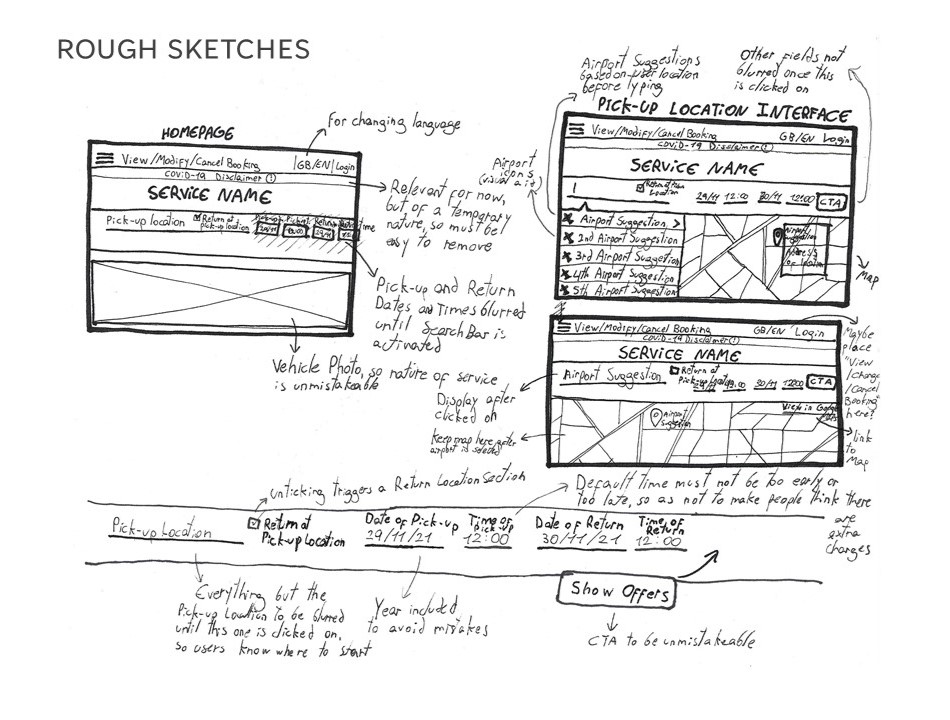 ROUGH SKETCHES
HOMEPAGE
For changing language
View/Modify/Cancel Booking |GB/EN| Login
COVID-19 Disclaimer (!)
SERVICE NAME
Pick-up location
Return at
pick-up location
29/11
12:00
Relevant for now,
but of a temporary
nature, so must be
easy to remove
Pick-up and Return
Dates and Times blurred
until Search Bar is
activated
Vehicle Photo, so nature of service
is unmistakeable
Airport Suggestions
based on user location
before typing
Other fields not
blurred once this
is clicked on
PICK-UP LOCATION INTERFACE
View/Modify/Cancel Booking GB/EN Login
COVID-19 Disclaimer (!)
SERVICE NAME
Airport
icons
(visual aid)
29/11 12:00 30/11 12:00 CTA
Airport Suggestion >
2nd Airport Suggestion
3rd Airport Suggestion
4th Airport Suggestion
5th Airport Suggestion
Airport
Suggestion
Map
View/Modify/Cancel Booking GB/EN Login
COVID-19 Disclaimer (!)
SERVICE NAME
Airport Suggestion
Return at
Pick-up
12:00 30/11 12:00 CTA
View in
Airport
Suggestion
Display after
clicked on
Keep map here after
airport is selected
Maybe
place
"View
/Change
/Cancel
Booking"
here?
link
to
Map
unticking triggers a Return Location Section
Default time must not be too early or
too late, so as not to make people think there
are
extra
charges
Pick-up Location
Return at
Pick-up Location
Date of Pick-up
29/11/21
Time of
Pick-up
12:00
Date of Return
30/11/21
Time of
Return
12:00
Show Offers
Everything but the
Pick-up Location to be blurred
until this one is clicked on,
so users know where to start
Year included
to avoid mistakes
CTA to be unmistakeable